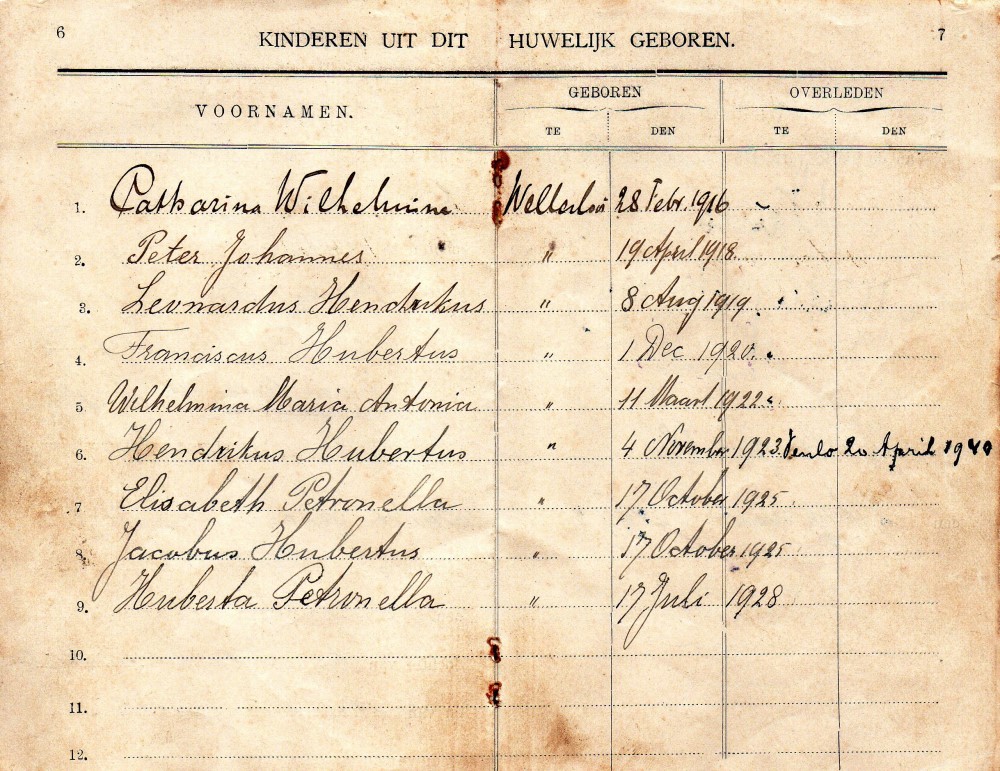 6 KINDEREN UIT DIT HUWELIJK GEBOREN. 7
VOORNAMEN. GEBOREN OVERLEDEN
TE DEN TE DEN
1. Catharina Wilhelmina Wellerlooi 28 Febr. 1916
2. Peter Johannes " 19 April 1918.
3. Leonardus Hendrikus " 8 Aug 1919.
4. Franciscus Hubertus " 1 Dec 1920.
5. Wilhelmina Maria Antonia " 11 Maart 1922
6. Hendrikus Hubertus " 4 November 1923 Venlo 20 April 1940
7. Elisabeth Petronella " 17 October 1925
8. Jacobus Hubertus " 17 October 1925
9. Huberta Petronella " 17 Juli 1928
10.
11.
12.